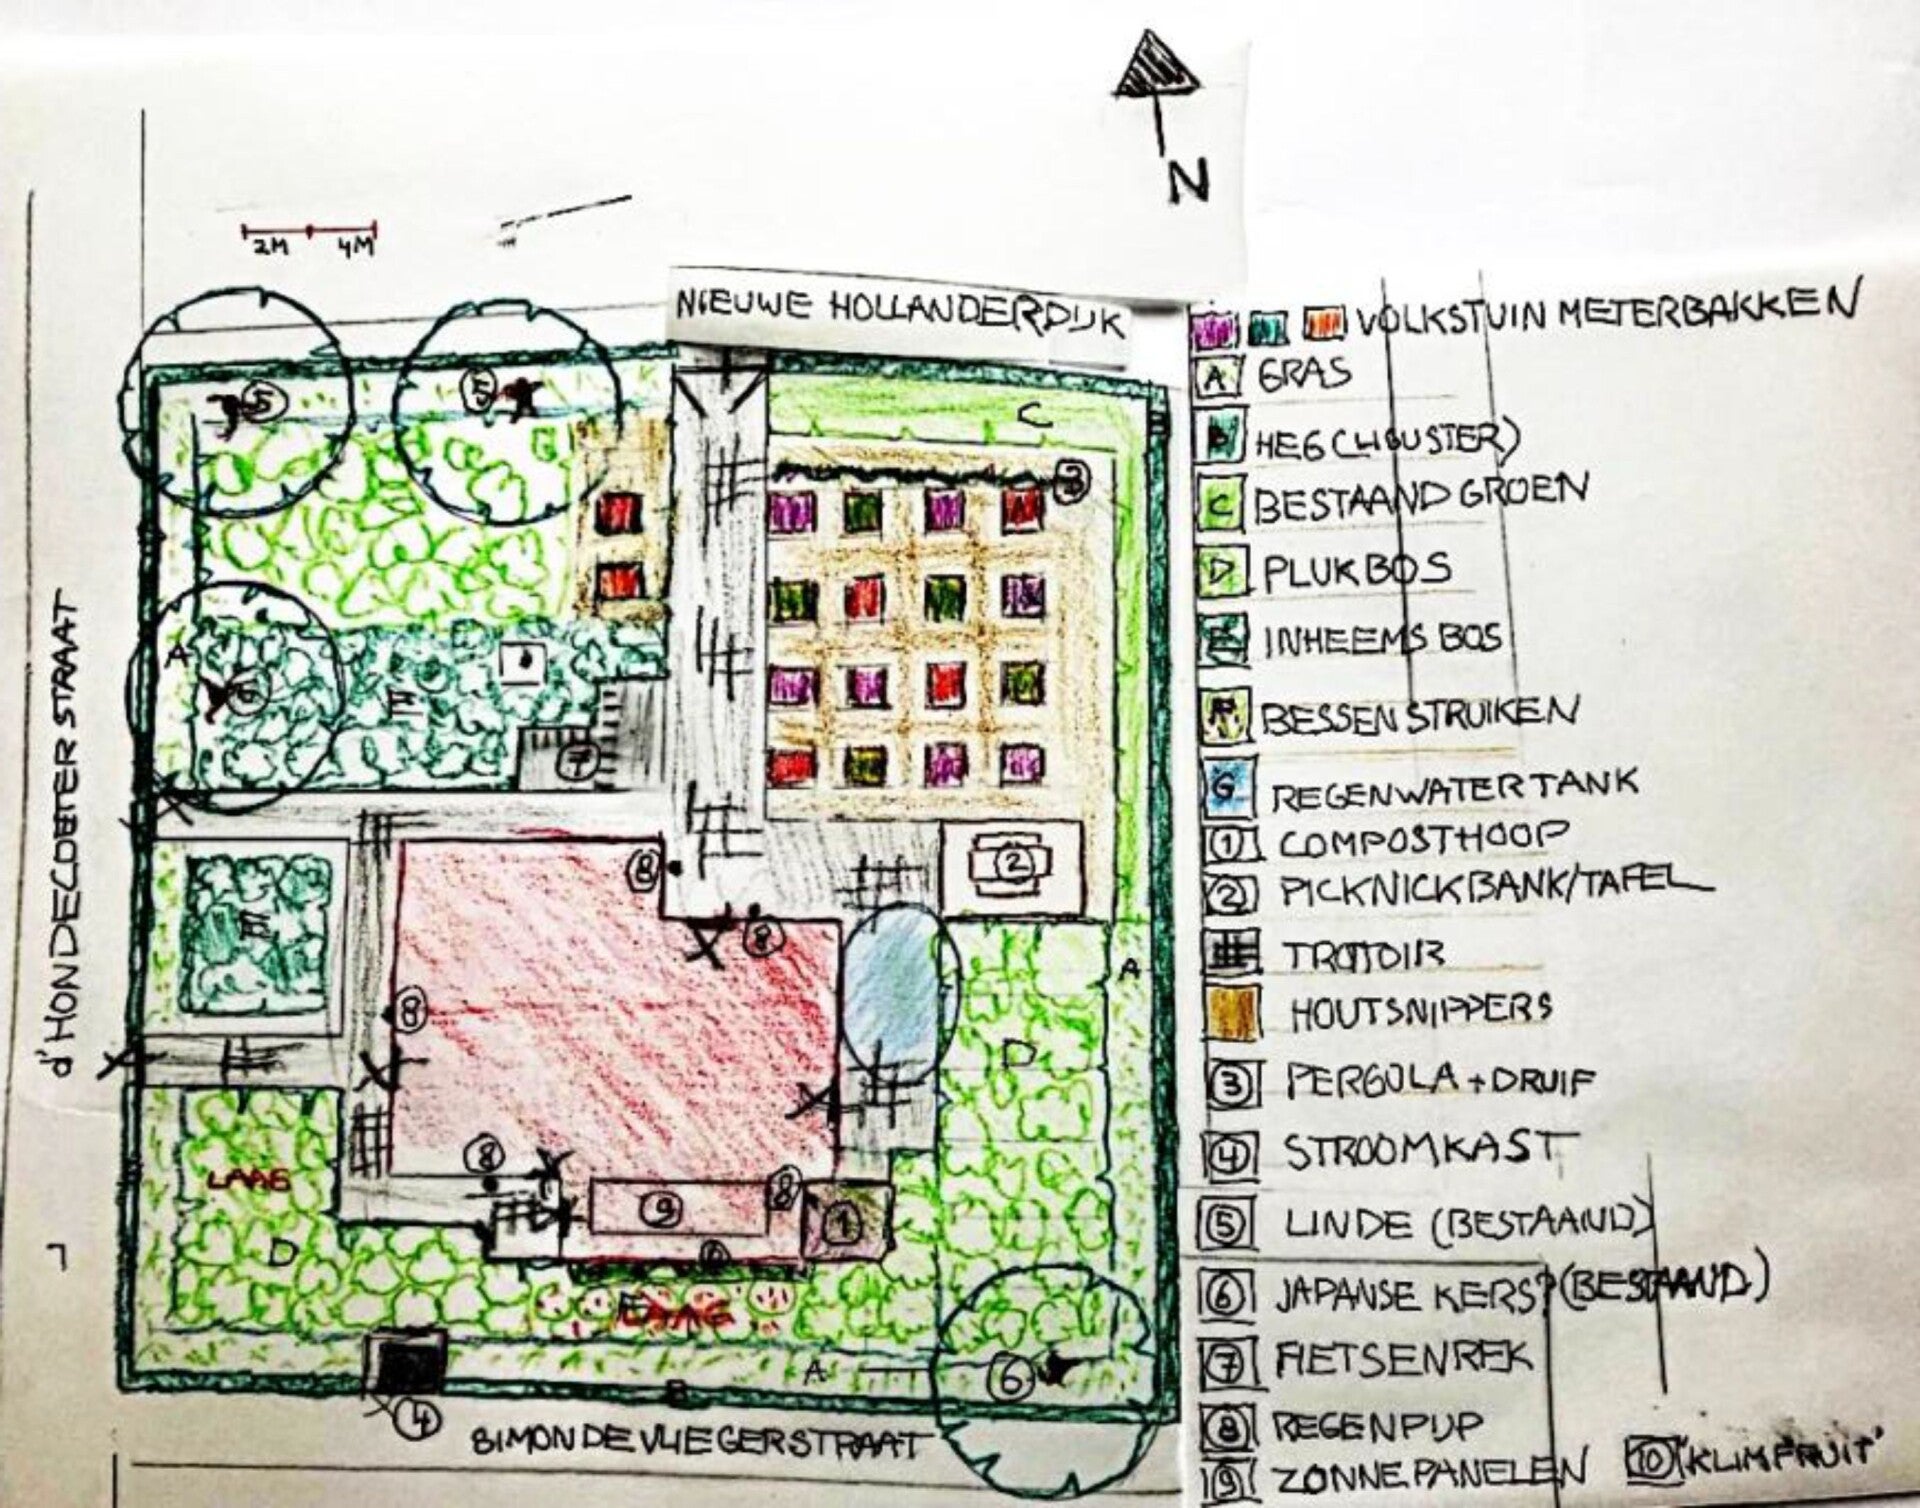 N
2M 4M
NIEUWE HOLLANDERDIJK
5
5
C
3
A
6
E
7
8
2
E
8
8
A
D
LAAG
8
9
8
1
D
LAAG
A
6
B
4
d'HONDECOETER STRAAT
SIMON DE VLIEGERSTRAAT
VOLKSTUIN METERBAKKEN
A GRAS
B HEG (LIGUSTER)
C BESTAAND GROEN
D PLUKBOS
E INHEEMS BOS
F BESSEN STRUIKEN
G REGENWATERTANK
1 COMPOSTHOOP
2 PICKNICKBANK/TAFEL
TROTTOIR
HOUTSNIPPERS
3 PERGOLA + DRUIF
4 STROOMKAST
5 LINDE (BESTAAND)
6 JAPANSE KERS? (BESTAAND)
7 FIETSENREK
8 REGENPIJP
9 ZONNEPANELEN
10 "KLIMFRUIT"